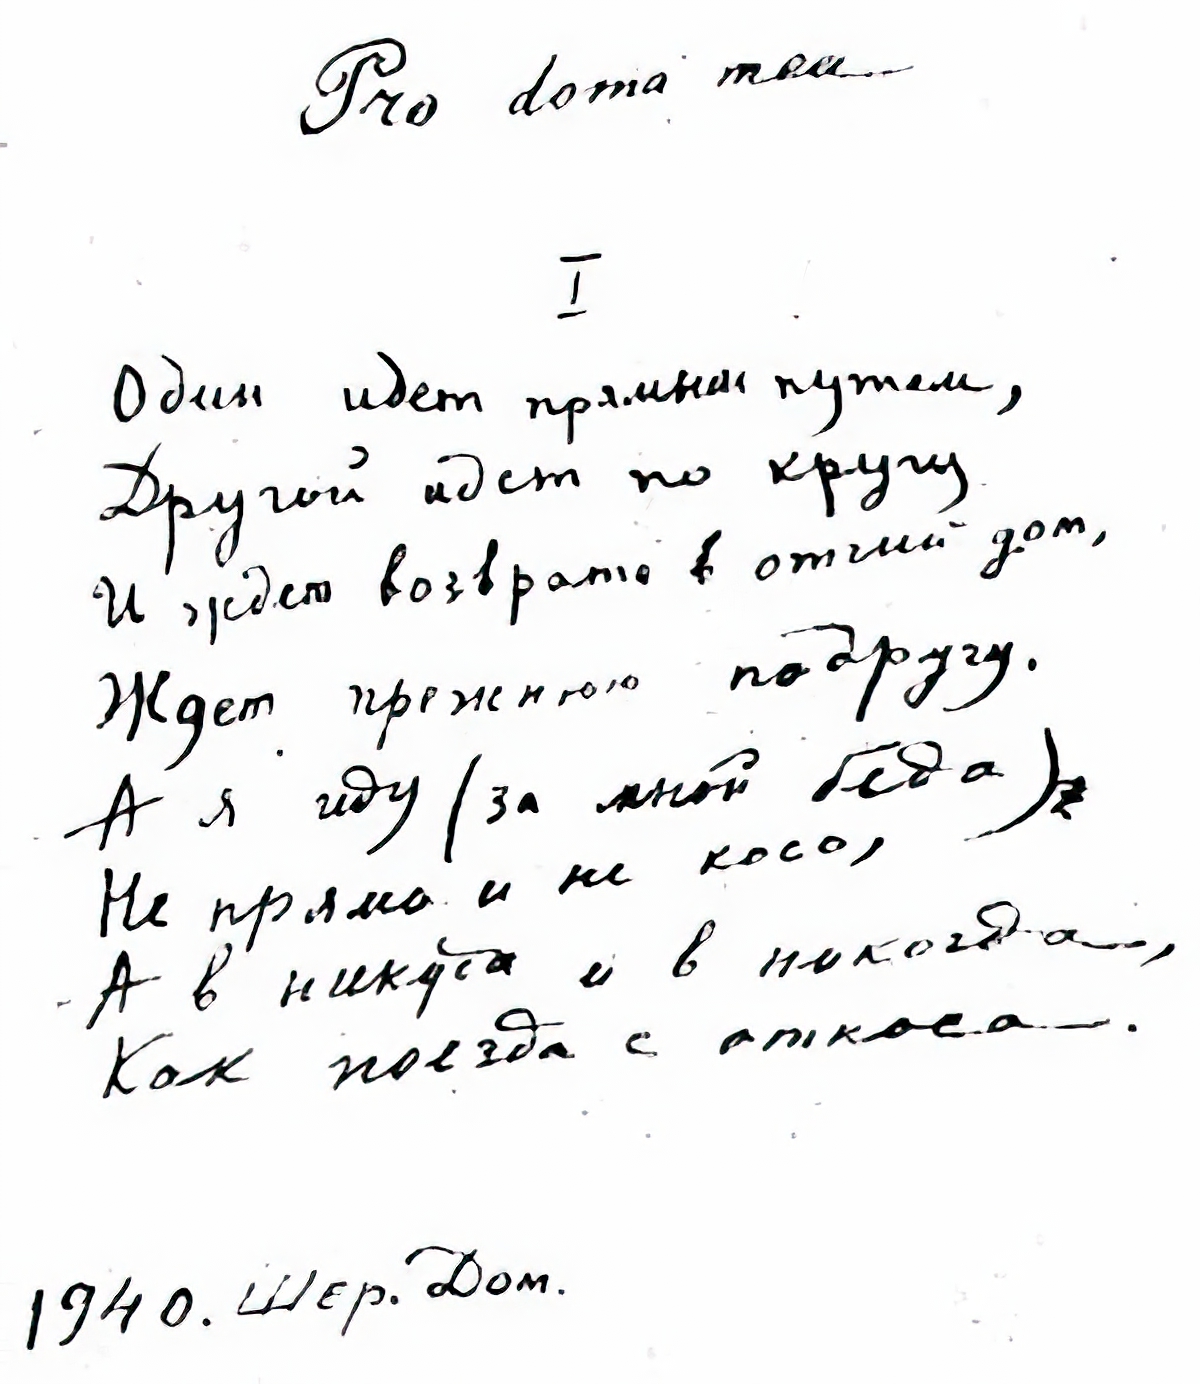 Pro doma mea
I
Один идет прямым путем,
Другой идет по кругу
И ждет возврата в отчий дом,
Ждет прежнюю подругу.
А я иду (за мной беда)
Не прямо и не косо,
А в никуда и в никогда,
Как поезда с откоса.
1940. Шер. Дом.